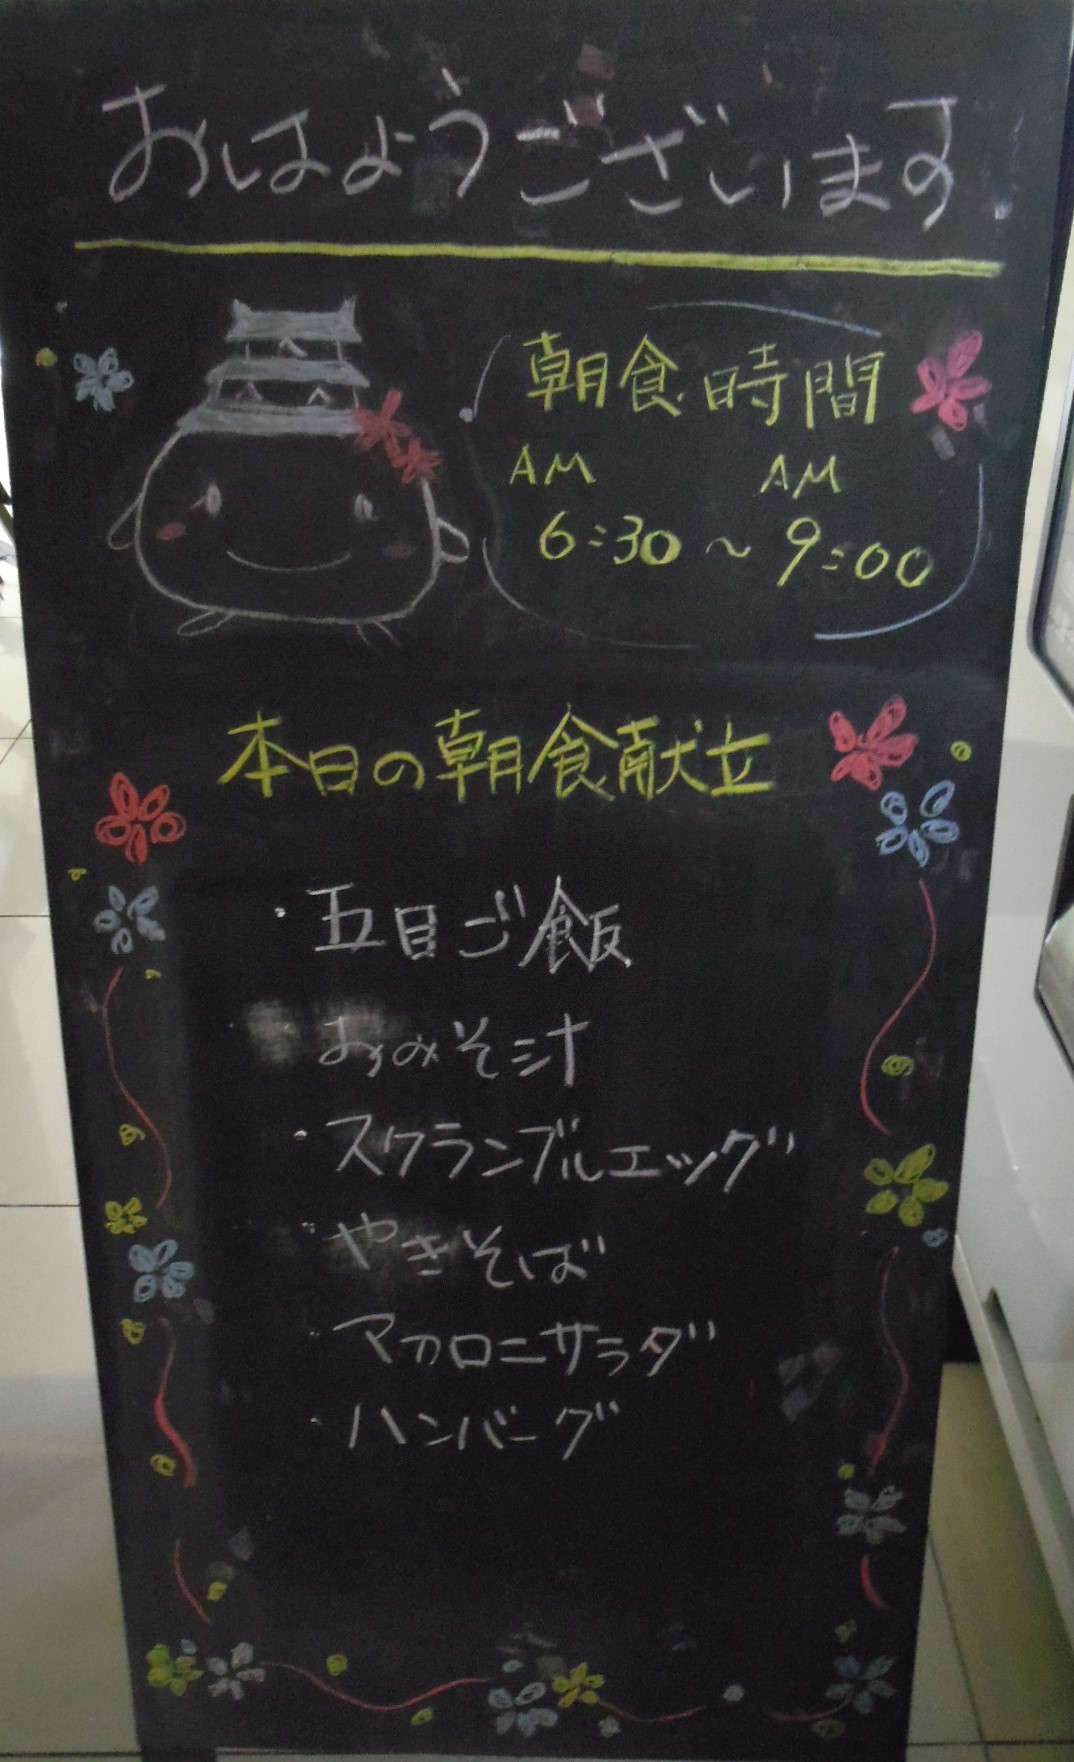 おはようございます!
朝食時間
AM AM
6:30~9:00
本日の朝食献立
・五目ご飯
おみそ汁
・スクランブルエッグ
・やきそば
・マカロニサラダ
・ハンバーグ